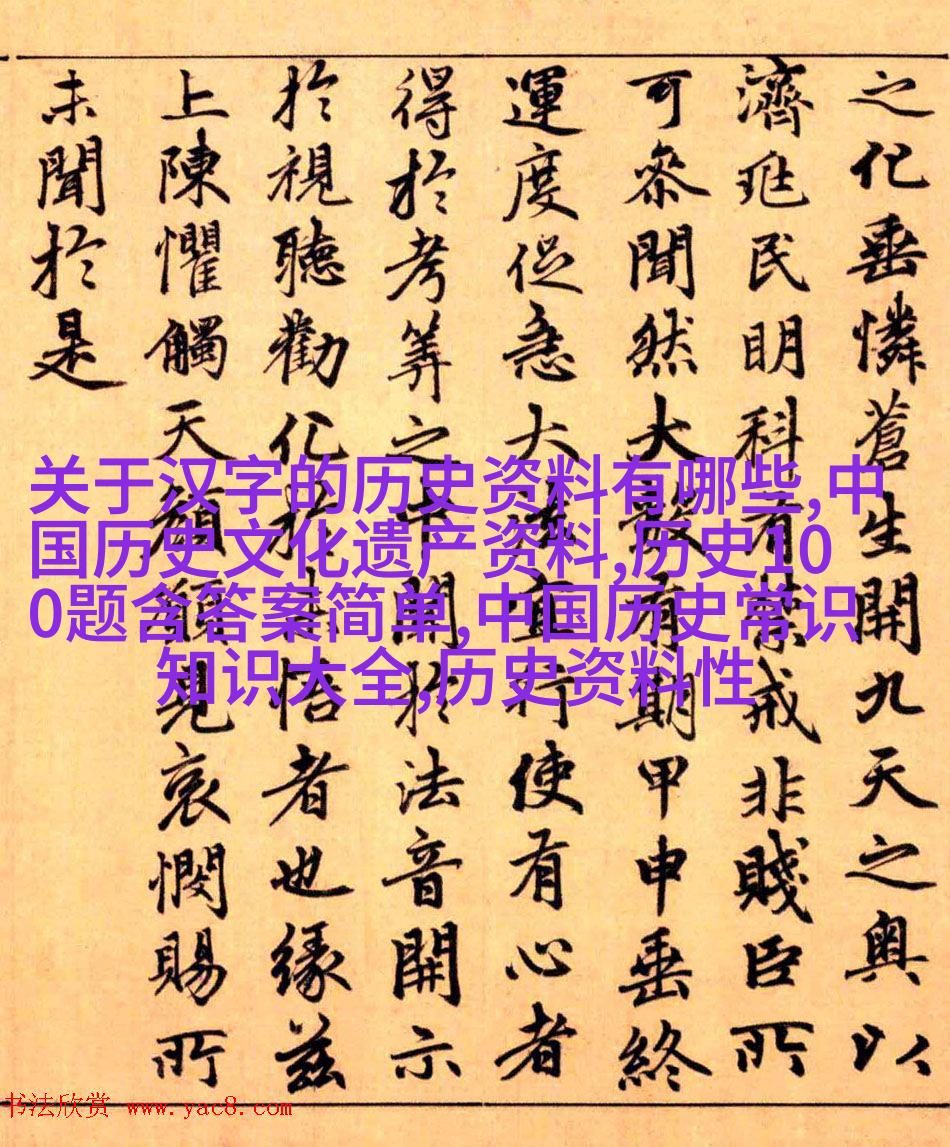 之化垂憐蒼生開九天之奧以
濟兆民明科有禁戒非賤臣所
可參聞然大數有期甲申垂終
運度促急大法宜行使有心者
得於考筭之中於法音開示
於視聽勸化於未悟者也緣茲
上陳懼觸天顏願見哀憫賜所
未聞於是
关于汉字的历史资料有哪些,中
国历史文化遗产资料,历史10
0题含答案简单,中国历史常识
知识大全,历史资料性
书法欣赏 www.yac8.com